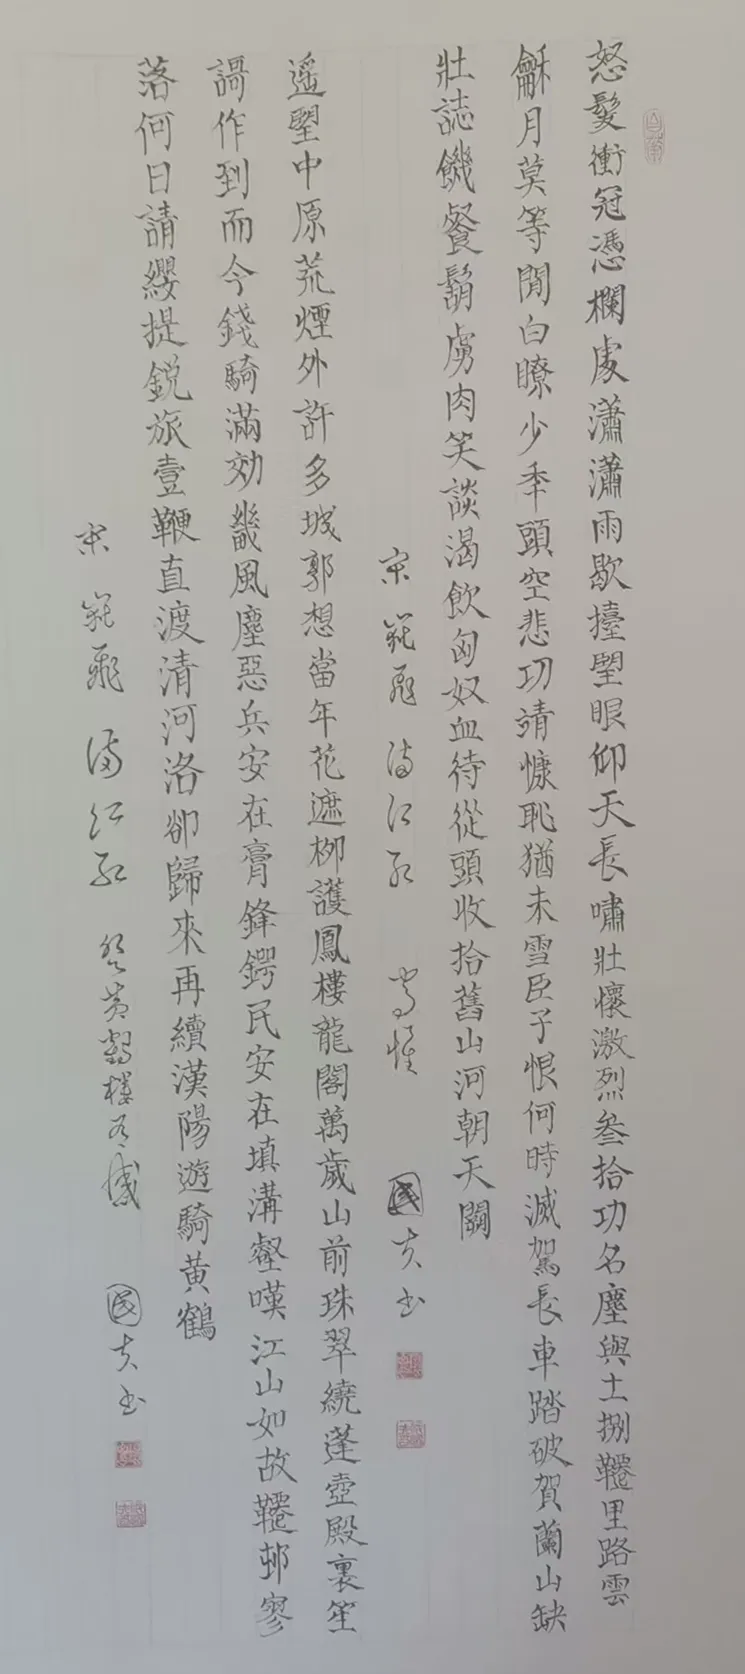 怒髮衝冠憑欄處瀟瀟雨歇擡朢眼仰天長嘯壯懷激烈叁拾功名塵與土捌韆里路雲
龢月莫等閒白瞭少秊頭空悲切靖慷恥猶未雪臣子恨何時滅駕長車踏破賀蘭山缺
壯誌饑餐鬍虜肉笑談渴飲匈奴血待從頭收拾舊山河朝天闕
宋 岳飛 滿江紅 寫懷 國夫書
遥朢中原荒煙外許多城郭想當年花遮栁護鳳樓龍閣萬歲山前珠翠繞蓬壺殿裏笙
謌作到而今錢騎滿効畿風塵惡兵安在膏鋒鍔民安在填溝壑嘆江山如故韆邨寥
落何日請纓提鋭旅壹鞭直渡清河洛卻歸來再續漢陽遊騎黄鶴
宋 岳飛 滿江紅 登黄鶴樓有感 國夫書